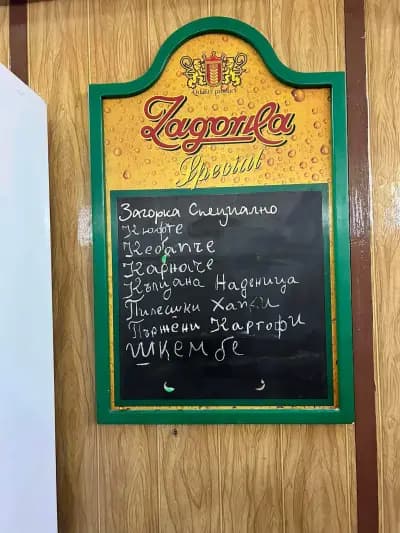 Zagorka
Special
Загорка Специално
Кюфте
Кебапче
Карначе
Кълцана Наденица
Пилешки Хапки
Пържени Картофи
Шкембе